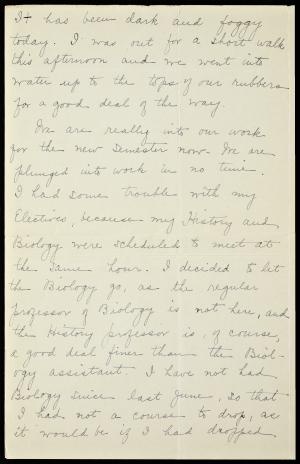 It has been dark and foggy
today. I was out for a short walk
this afternoon and we went into
water up to the tops of our rubbers
for a good deal of the way.
We are really into our work
for the new semester now. We are
plunged into work in no time.
I had some trouble with my
Electives, because my History and
Biology were scheduled to meet at
the same hour. I decided to let
the Biology go, as the regular
professor of Biology is not here, and
the History professor is, of course,
a good deal finer than the Biol-
ogy assistant. I have not had
Biology since last June, so that
I had not a course to drop, as
it would be if I had dropped